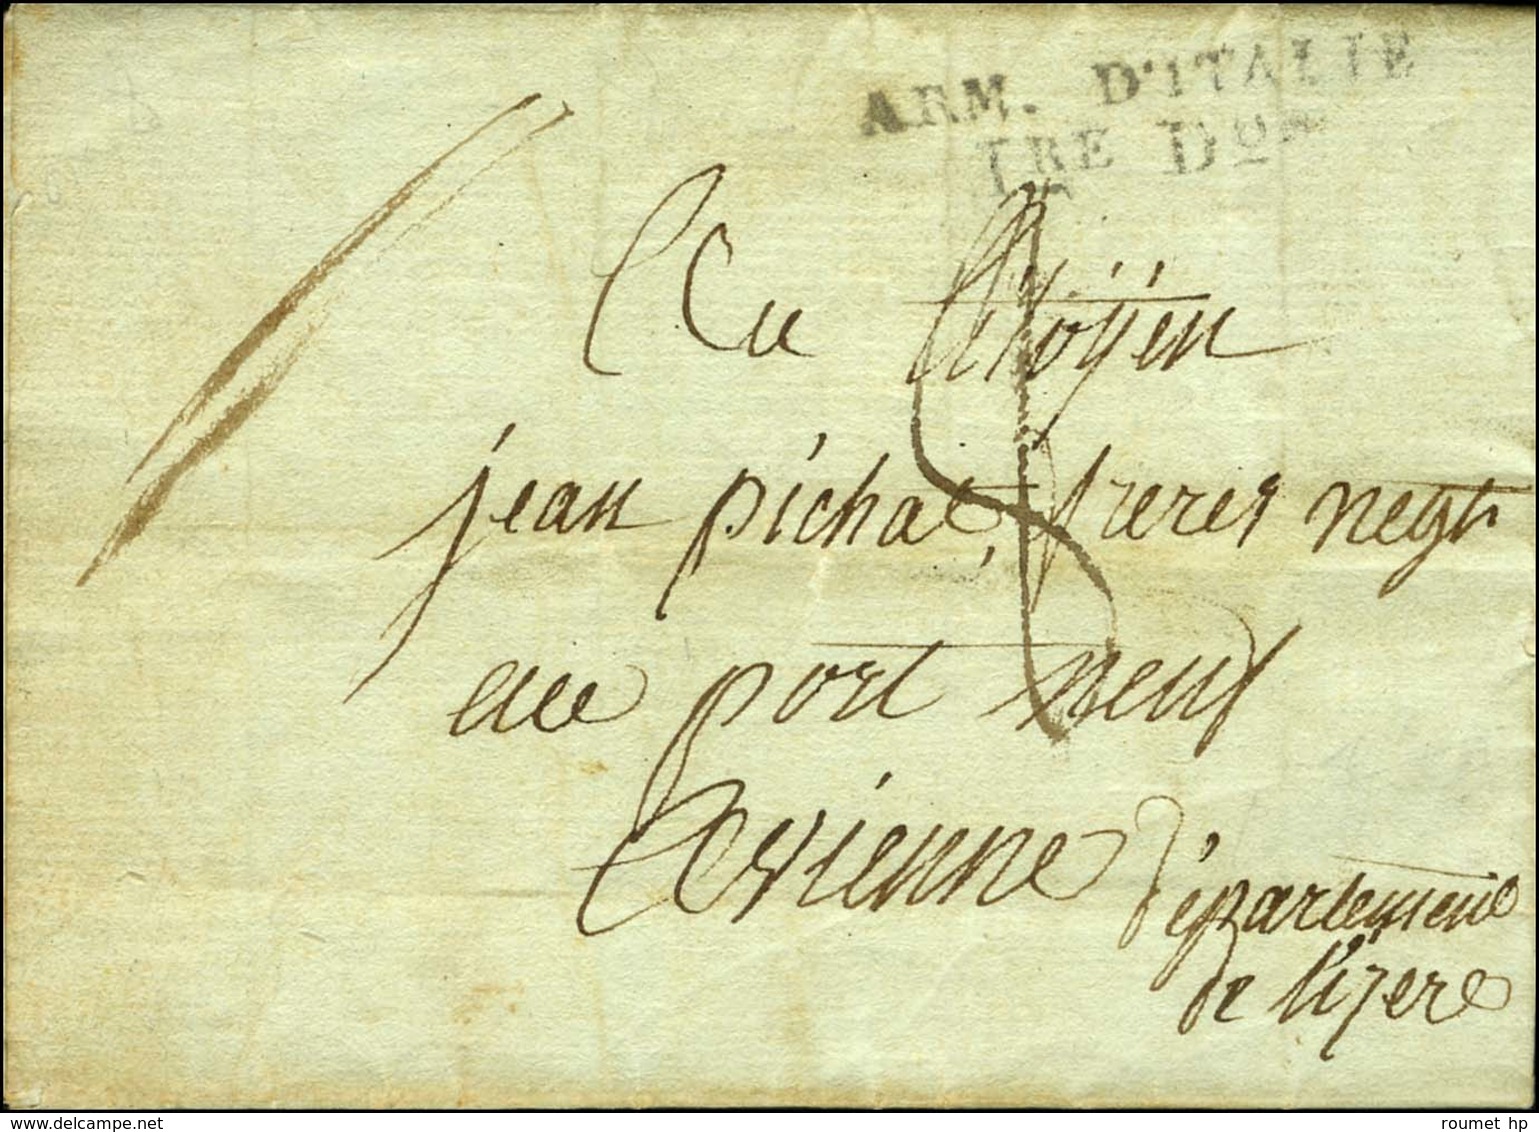 ARM. D'ITALIE
IRE Don
Au Citoÿen
jean pichat, freres negt
au port neuf
A vienne
département
de l'izere
roumet hp